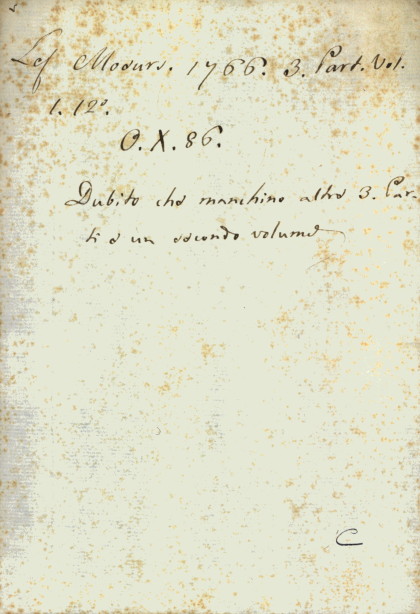 Les Moeurs. 1766. 3. Part. Vol.
1. 12º.
O. X. 86.
Dubito che manchino altre 3. Par-
ti e un secondo volume
C